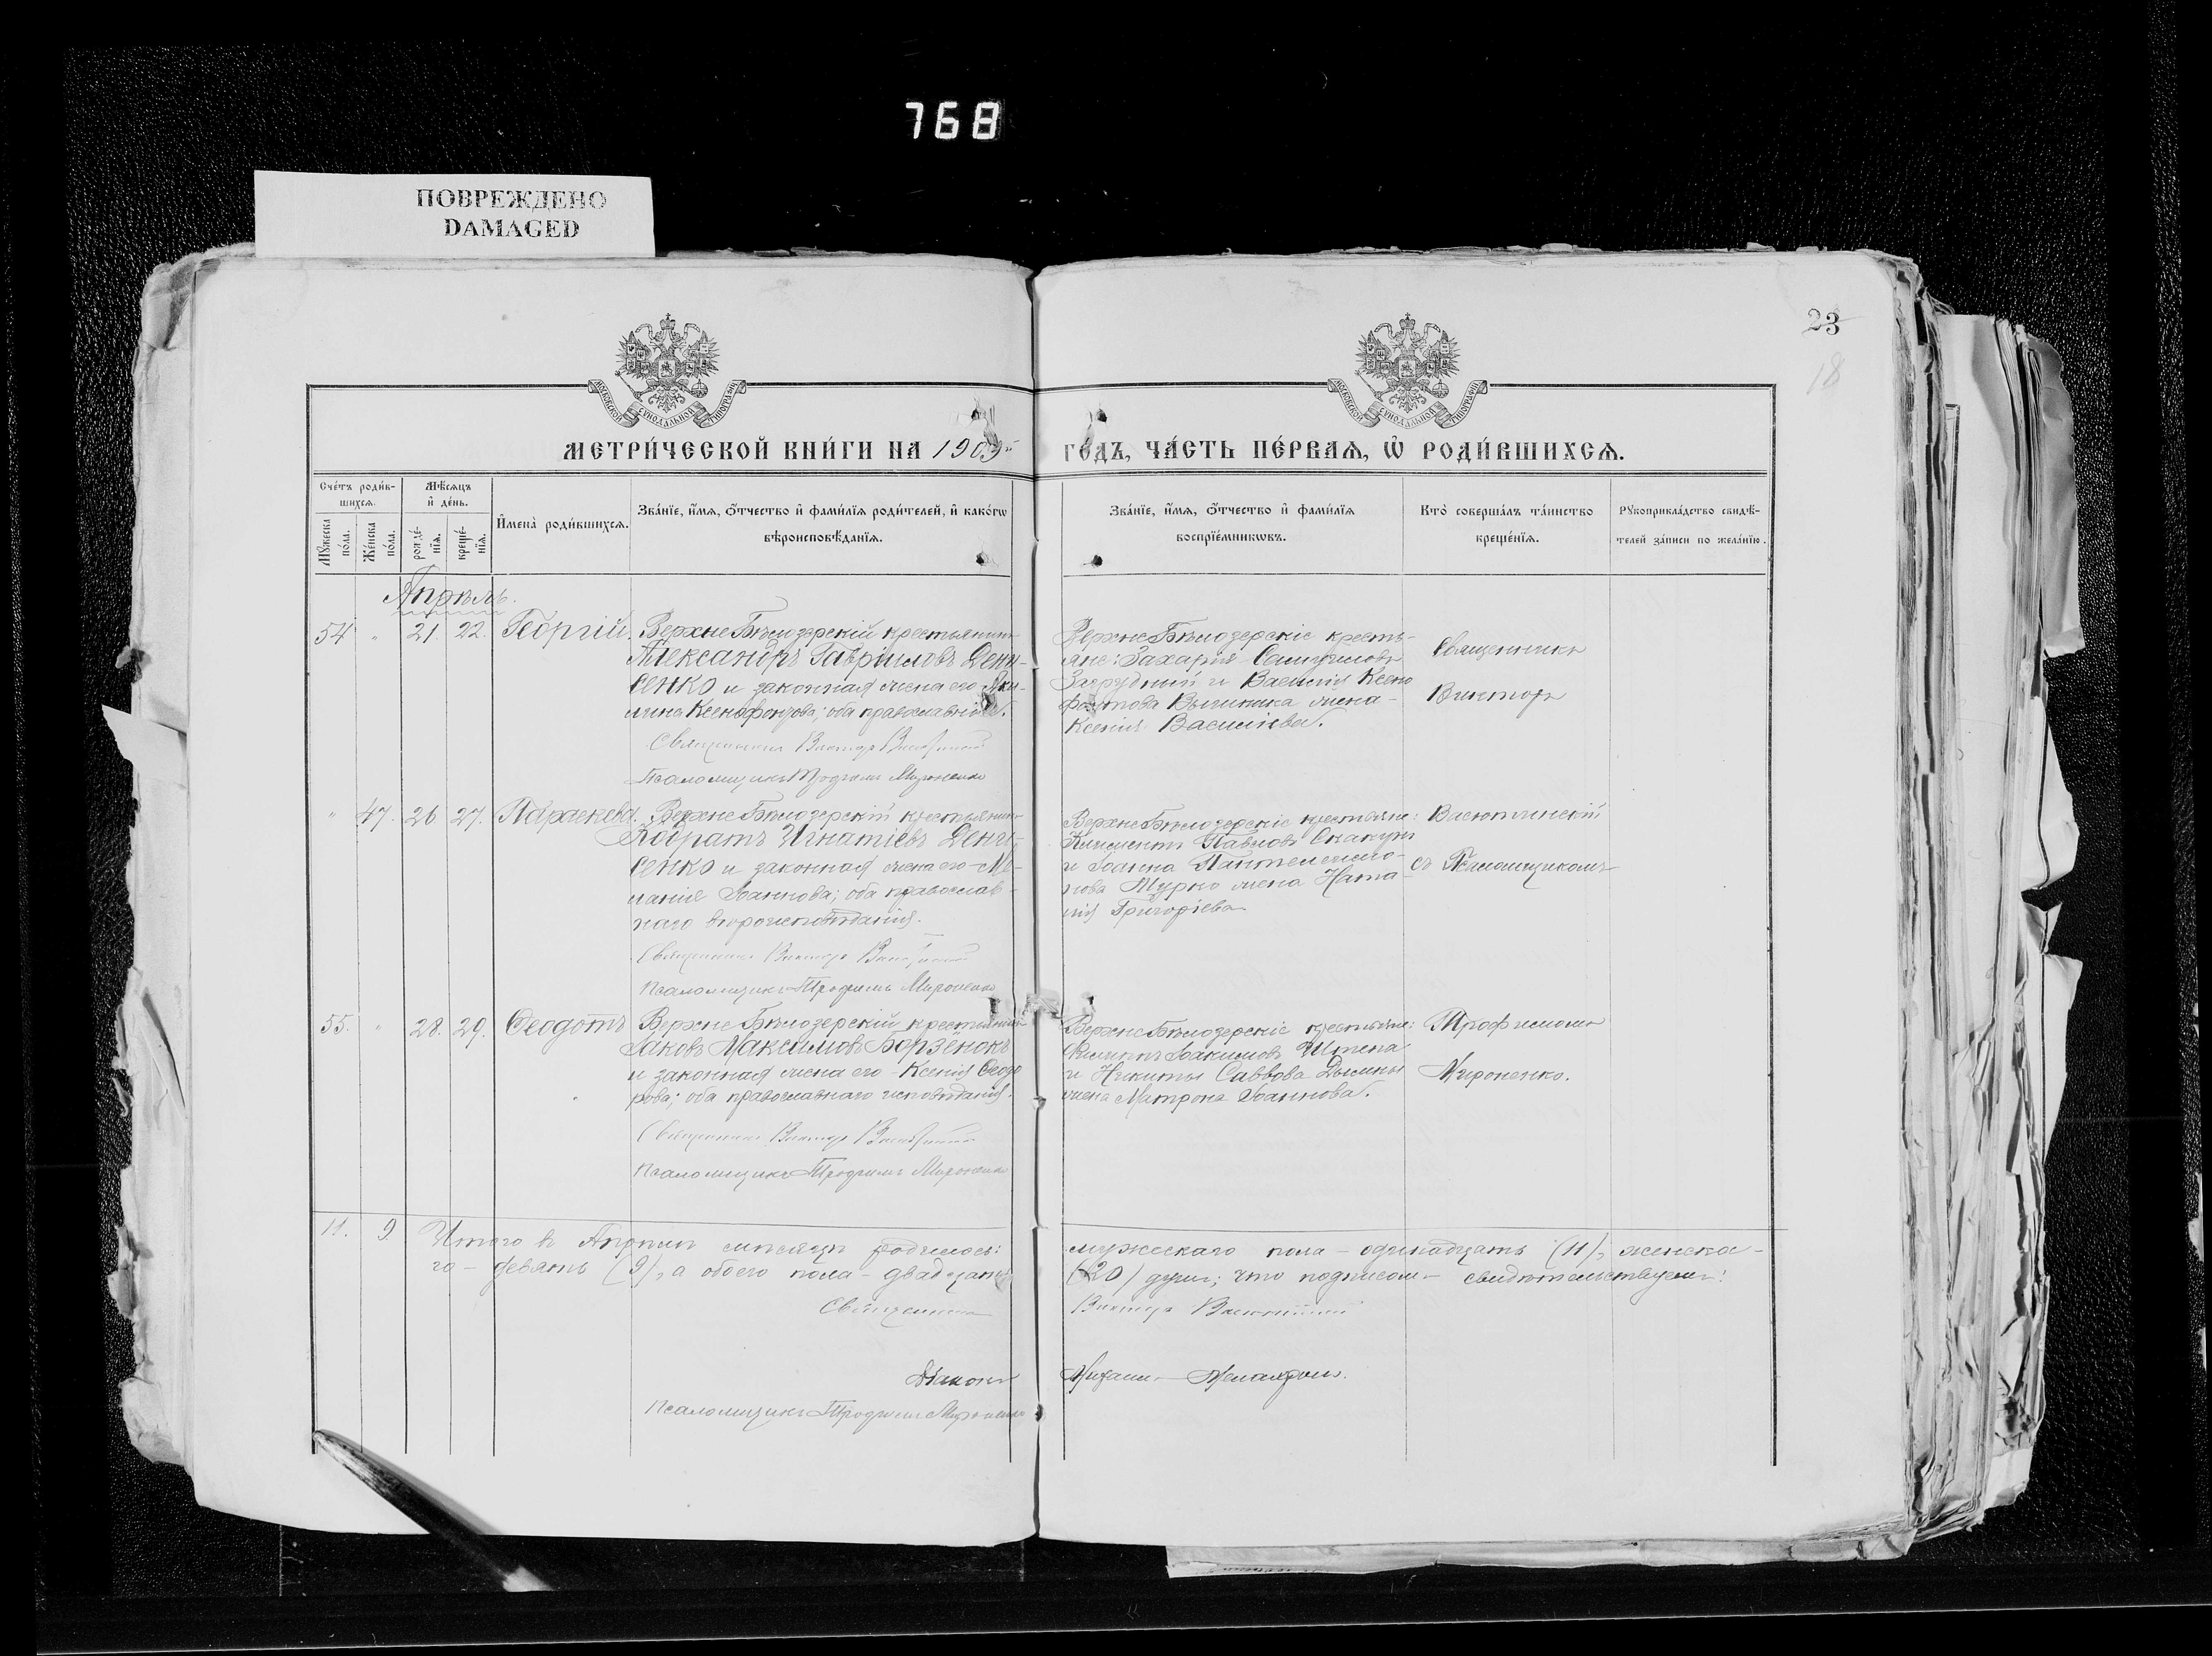 768
ПОВРЕЖДЕНО
DAMAGED
23
18
МЕТРИ́ЧЕСКОЙ КНИ́ГИ НА 1909
ГО́ДЪ, ЧА́СТЬ ПЕ́РВАѦ, Ѡ҆ РОДИ́ВШИХСѦ.
Сче́тъ роди́в-
шихсѧ.
Мꙋ́жеска по́ла.
Же́нска по́ла.
Мѣ́сѧцъ
и҆ де́нь.
рожде́-нїѧ.
креще́-нїѧ.
И҆мена̀ роди́вшихсѧ.
Зва́нїе, и҆́мѧ, ѻ҆́тчество и҆ фами́лїѧ роди́телей, и҆ како́гѡ
вѣроисповѣ́данїѧ.
Зва́нїе, и҆́мѧ, ѻ҆́тчество и҆ фами́лїѧ
воспрїе́мникѡвъ.
Кто̀ соверша́лъ та́инство
креще́нїѧ.
Рꙋкоприкла́дство свидѣ́-
телей за́писи по жела́нїю.
Апрѣль.
54 " 21. 22. Георгій.
Верхне Бѣлозерскій крестьянинъ
Александръ Гавріиловъ Дени-
сенко и законная жена его Аки-
лина Ксенофонтова; оба православные.
Священникъ Викторъ
Псаломщикъ Трофимъ Мироненко
Верхне Бѣлозерскіе кресть-
яне: Захарія Самуиловъ
Загрудный и Василія Ксено
фонтова жена
Ксенія Васильева.
Священникъ
Викторъ
" 47. 26 27. Параскева.
Верхне Бѣлозерскій крестьянинъ
Кодратъ Игнатіевъ Дени-
сенко и законная жена его Ме-
ланія Іоаннова; оба православ-
наго вѣроисповѣданія.
Священникъ Викторъ
Псаломщикъ Трофимъ Мироненко
Верхне Бѣлозерскіе крестьяне:
Климентъ Павловъ Скакунъ
и Іоанна Пантелеимо-
нова Мурко жена Ната-
лія Григоріева
Васютинскій
съ Псаломщикомъ
55. " 28. 29. Ѳеодотъ
Верхне Бѣлозерскій крестьянинъ
Іаковъ Максимовъ Борзёнокъ
и законная жена его Ксенія Ѳеодо
рова; оба православнаго исповѣданія.
Священникъ Викторъ
Псаломщикъ Трофимъ Мироненко
Верхне Бѣлозерскіе крестьяне:
Филиппъ Іоакимовъ Штепа
и Никиты Саввова
жена Матрона Іоаннова.
Трофимомъ
Мироненко.
11. 9 Итого въ Апрѣлѣ мѣсяцѣ родилось:
мужескаго пола – одинадцать (11), женска-
го – девять (9), а обоего пола – двадцать
(20) душъ; что подписомъ свидѣтельствуемъ:
Священникъ
Викторъ Васютинскій
Діаконъ
Михаилъ
Псаломщикъ Трофимъ Мироненко